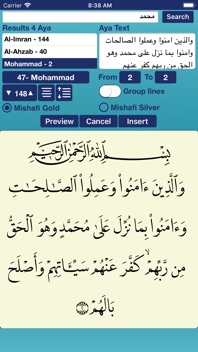 8:38 AM
محمد
Search
Results 4 Aya
Aya Text
Al-Imran - 144
Al-Ahzab - 40
Mohammad - 2
والذين امنوا وعملوا الصالحات
وامنوا بما نزل على محمد وهو
الحق من ربهم كفر عنهم
47- Mohammad
From
2
To
2
148
Group lines
Mishafi Gold
Mishafi Silver
Preview
Cancel
Insert
بِسْمِ ٱللَّهِ ٱلرَّحْمَٰنِ ٱلرَّحِيمِ
وَٱلَّذِينَ ءَامَنُوا۟ وَعَمِلُوا۟ ٱلصَّٰلِحَٰتِ
وَءَامَنُوا۟ بِمَا نُزِّلَ عَلَىٰ مُحَمَّدٍ وَهُوَ ٱلْحَقُّ
مِن رَّبِّهِمْ ۙ كَفَّرَ عَنْهُمْ سَيِّـَٔاتِهِمْ وَأَصْلَحَ
بَالَهُمْ